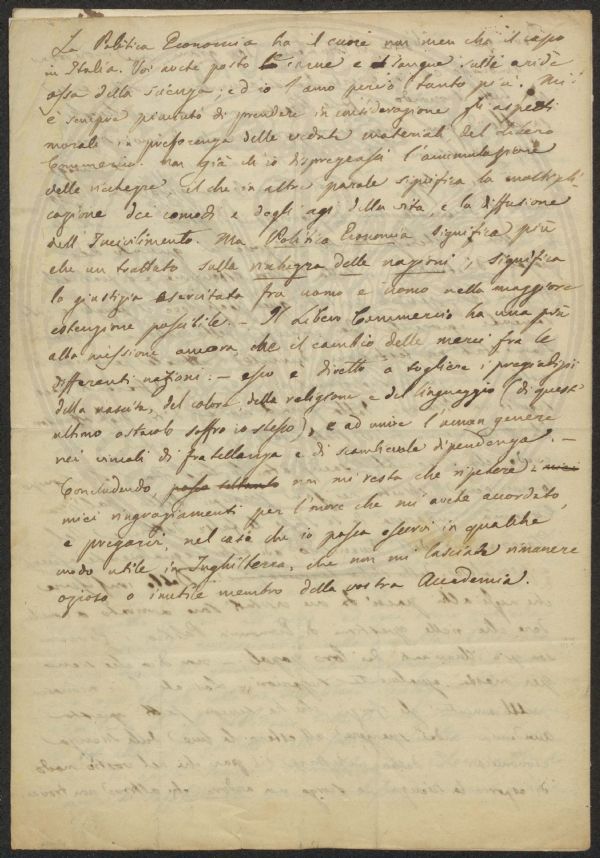 La Politica Economia ha il cuore non men che il capo
in Italia. Voi avete posto carne e sangue sulle aride
ossa della scienza; ed io l'amo perciò tanto più. Mi
è sempre piaciuto di prendere in considerazione gli aspetti
morali in preferenza delle vedute materiali del Libero
Commercio. non già ch'io dispregiassi l'accumulazione
delle ricchezze, il che in altre parole significa la moltipli-
cazione dei comodi e degli agi della vita, e la diffusione
dell'Incivilimento. Ma Politica Economia significa più
che un trattato sulla richezza delle nazioni; significa
la giustizia esercitata fra uomo e uomo nella maggiore
estenzione possibile. – Il Libero Commercio ha una più
alta missione ancora che il cambio delle merci fra le
differenti nazioni: – esso è diretto a togliere i pregiudizi
della nascita, del colore della religione e del linguaggio (di quest'
ultimo ostacolo soffro io stesso), e ad unire l'uman genere
nei vincoli di fratellanza e di scambievole dipendenza. –
Concludendo possa soltanto non mi resta che ripetere i miei
miei ringraziamenti per l'onore che mi avete accordato,
e pregarvi, nel caso che io possa esservi in qualche
modo utile in Inghilterra, che non mi lasciate rimanere
ozioso o inutile membro della vostra Accademia.